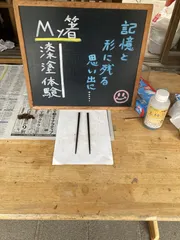 My箸
漆塗体験
記憶と
形に残る
思い出に……